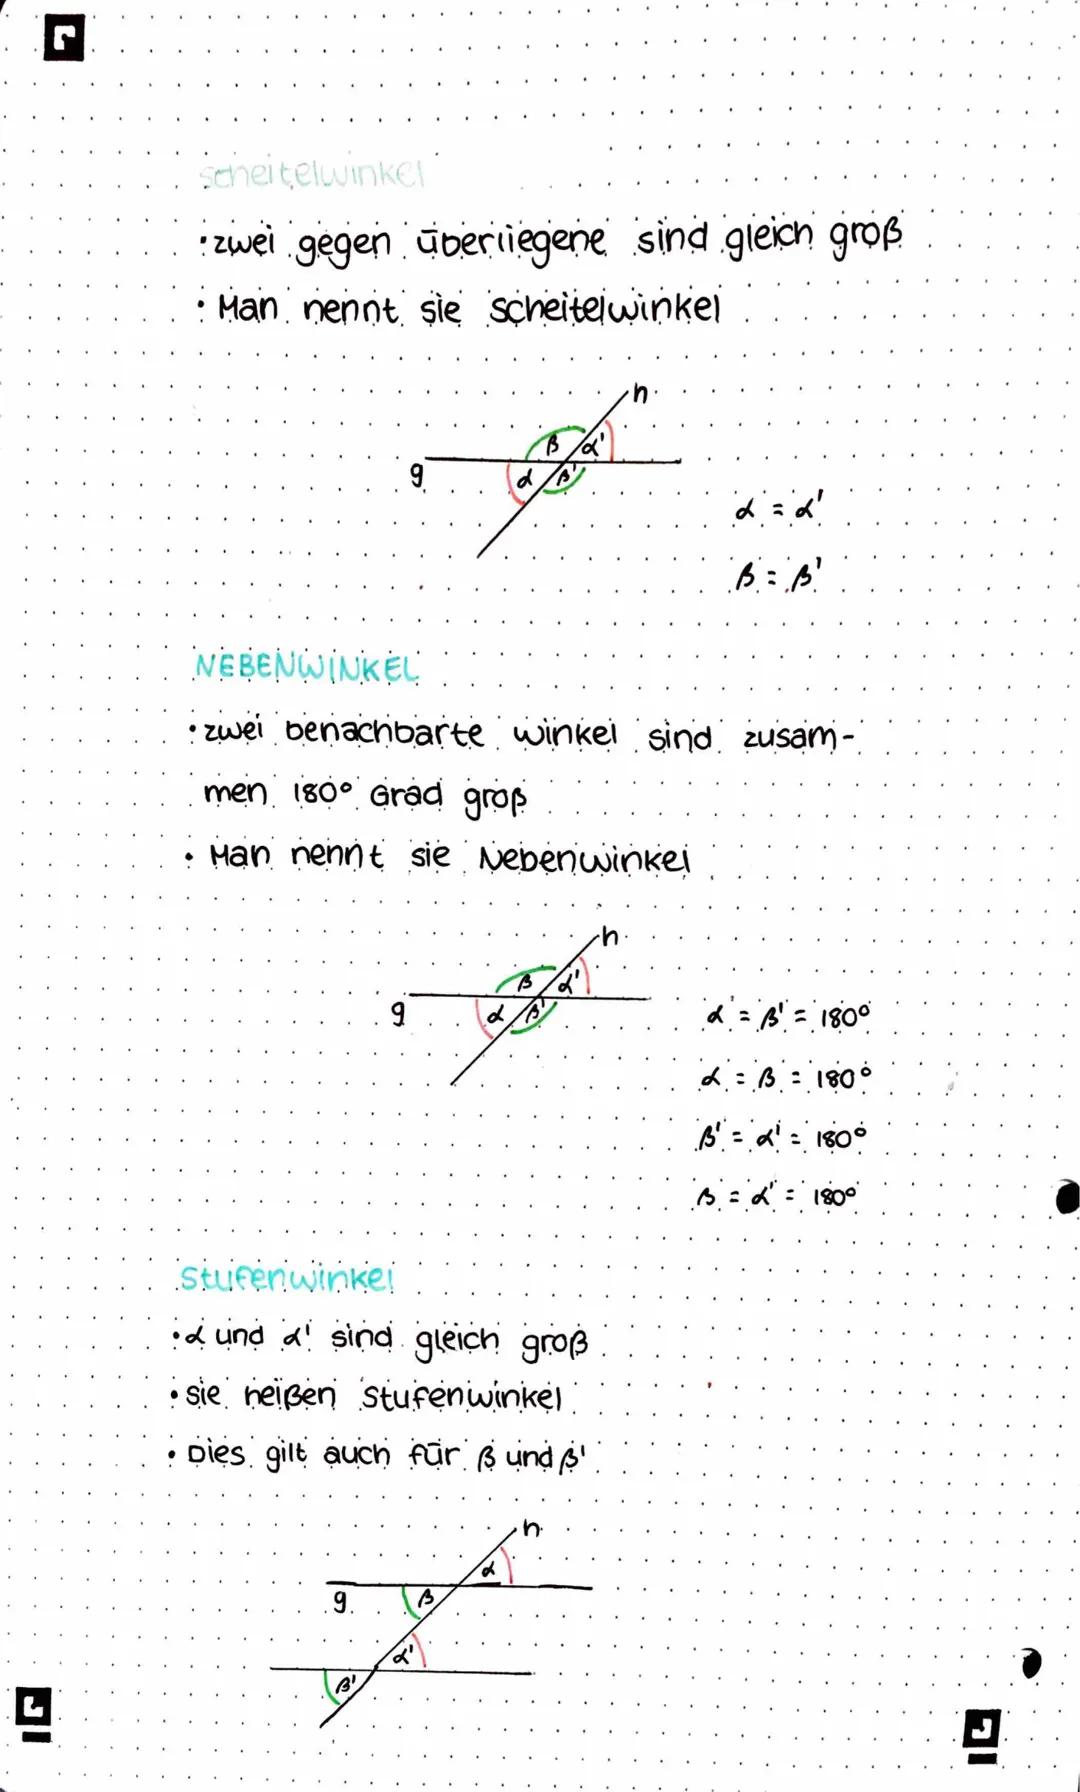 scheitelwinkel
• zwei gegen überliegene sind gleich groß
• Man nennt sie scheitelwinkel
h
β α'
g α β'
α = α'
β = β'
NEBENWINKEL
• zwei benachbarte winkel sind zusam-
men 180° Grad groß
• Man nennt sie Nebenwinkel
h
β α'
g α β'
α = β' = 180°
α = β = 180°
β' = α' = 180°
β = α' = 180°
Stufenwinkel
• α und α' sind gleich groß
• sie heißen Stufenwinkel
• Dies gilt auch für β und β'
h
α
g β
α'
β'